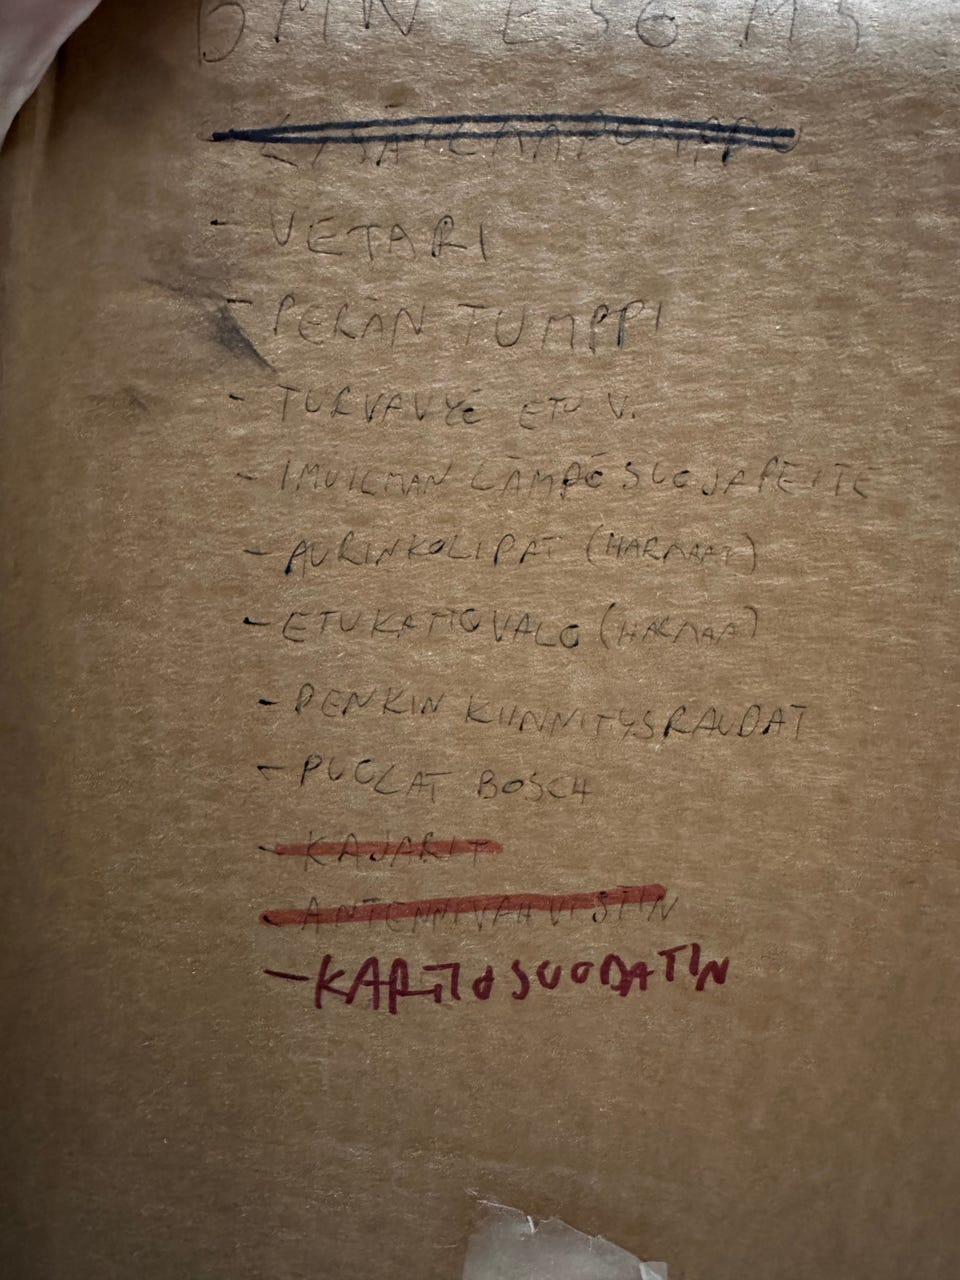 BMW E36 M3
- LISÄILMAPUMPPU
- VETARI
- PERÄN TUMPPI
- TURVAVYÖ ETU V.
- IMUILMAN LÄMPÖSUOJAPEITE
- AURINKOLIPAT (HARMAAT)
- ETUKATTOVALO (HARMAA)
- PENKIN KIINNITYSRAUDAT
- PUOLAT BOSCH
- KAJARIT
- ANTENNIVAHVISTIN
- KARTIOSUODATIN